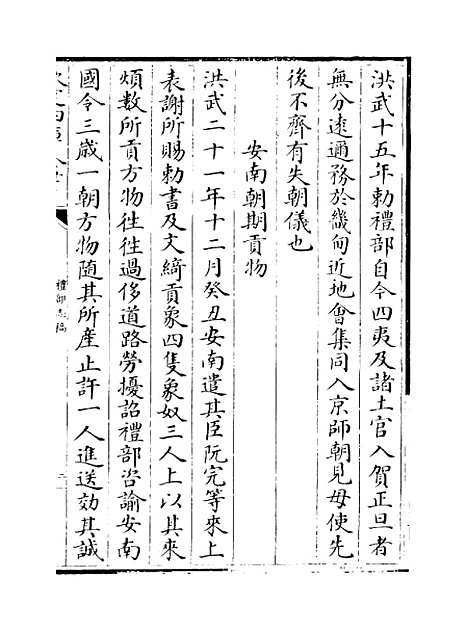 洪武十五年勅禮部自今四夷及諸土官入賀正旦者
無分遠邇務於畿甸近地會集同入京師朝見毋使先
後不齊有失朝儀也
安南朝期貢物
洪武二十一年十二月癸丑安南遣其臣阮完等來上
表謝所賜勅書及文綺貢象四隻象奴三人上以其來
煩數所貢方物徃徃過侈道路勞擾詔禮部咨諭安南
國令三歲一朝方物隨其所產止許一人進送効其誠
禮部志稿